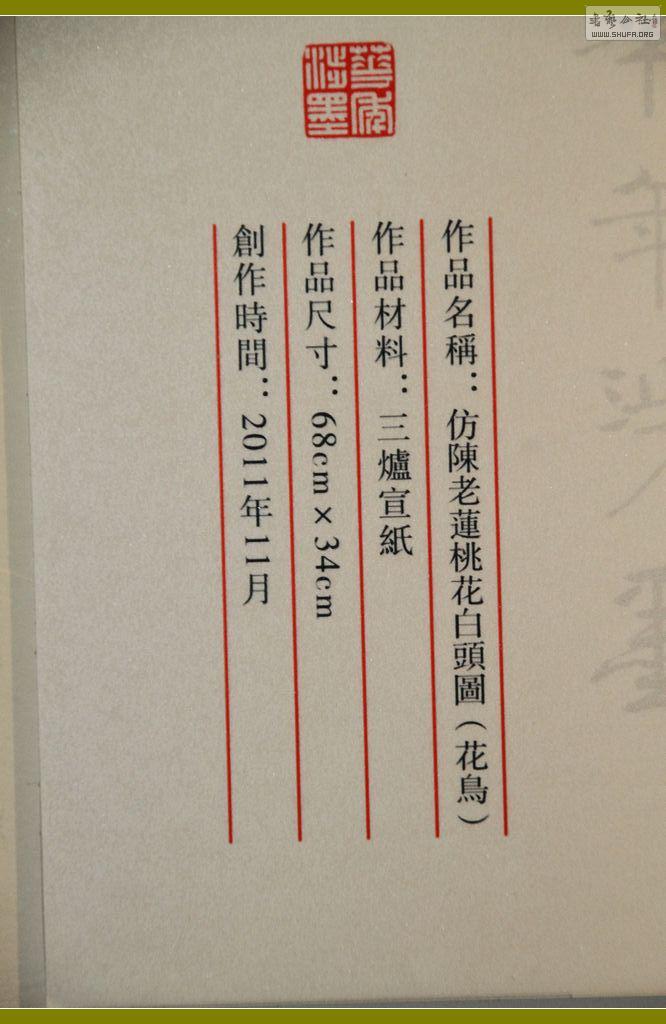 作品名稱：仿陳老蓮桃花白頭圖（花鳥）
作品材料：三爐宣紙
作品尺寸：68cm×34cm
創作時間：2011年11月
华年涉墨
WWW.SHUFA.ORG